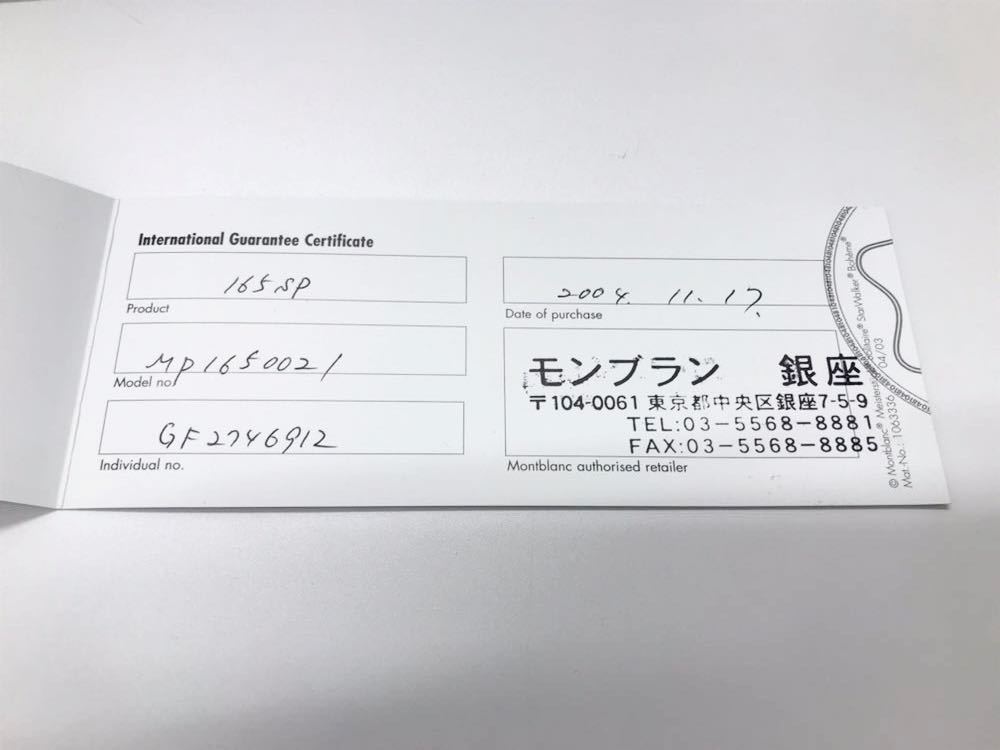 International Guarantee Certificate
165SP
Product
MP1650021
Model no.
GF2746912
Individual no.
2004. 11. 17.
Date of purchase
モンブラン 銀座
〒104-0061 東京都中央区銀座7-5-9
TEL:03-5568-8881
FAX:03-5568-8885
Montblanc authorised retailer
© Montblanc® Meisterstück® Solitaire® StarWalker® Bohème®
Mat.-No.: 1063336 04/03